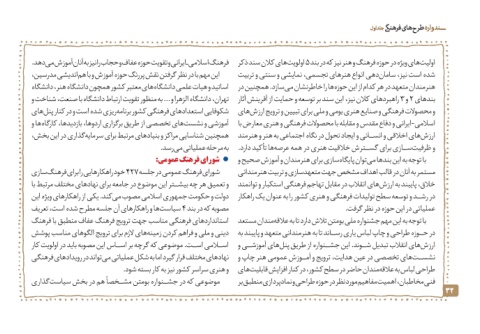 سند واره طرح‌های فرهنگی متداول
اولیت‌های ویژه در حوزه فرهنگ و هنر نیز که در بند ۵ اولویت‌های کلان سند ذکر
شده است نیز، سامان‌دهی انواع هنرهای تجسمی، نمایشی و سنتی و تربیت
هنرمندان متعهد در هر کدام از این حوزه‌ها را خاطرنشان می‌سازد. همچنین در
بندهای ۲ و ۳ راهبردهای کلان نیز، این سند بر توسعه و حمایت از آفرینش آثار
و محصولات فرهنگی و صنایع هنری بومی و ملی برای تبیین و ترویج ارزش‌های
اسلامی-ایرانی و دفاع مقدس و مقابله با محصولات فرهنگی و هنری معارض با
ارزش‌های اخلاقی و انسانی و ایجاد تحول در نگاه اجتماعی به هنر و هنرمند
و ظرفیت‌سازی برای گسترش خلاقیت هنری در همه عرصه‌ها تأکید دارد.
با توجه به این بندها می‌توان پایگاه‌سازی برای هنرمندان و آموزش صحیح و
مستمر به آنان در قالب اهداف مشخص جهت متعهدسازی و تربیت هنرمندانی
خلاق، پایبند به ارزش‌های انقلاب در مقابل تهاجم فرهنگی استکبار و توانمند
در رشد و توسعه سطح تولیدات فرهنگی و هنری کشور را به عنوان یک راهکار
عملیاتی در این حوزه در نظر گرفت.
با توجه به این مهم جشنواره ملی بومتن تلاش دارد تا به علاقه‌مندان مستعد
در حوزه طراحی و چاپ لباس یاری رساند تا به هنرمندانی متعهد و پایبند به
ارزش‌های انقلاب تبدیل شوند. این جشنواره از طریق پنل‌های آموزشی و
نشست‌های تخصصی در عین هدایت، ترویج و آموزش عمومی هنر چاپ و
طراحی لباس به علاقه‌مندان حاضر در سطح کشور، در کنار افزایش قابلیت‌های
فنی مخاطبان، اهمیت مفاهیم مورد نظر در حوزه طراحی و نمادپردازی منطبق بر
فرهنگ اسلامی-ایرانی و تقویت حوزه عفاف و حجاب را نیز به آنان آموزش می‌دهد.
این مهم با در نظر گرفتن نقش پررنگ حوزه آموزش و با هم‌اندیشی مدرسین،
اساتید و هیات علمی دانشگاه‌های معتبر کشور همچون دانشگاه هنر، دانشگاه
تهران، دانشگاه الزهرا و... به منظور تقویت ارتباط دانشگاه با صنعت، شناخت و
شکوفایی استعدادهای فرهنگی کشور برنامه‌ریزی شده است و در کنار پنل‌های
آموزشی و نشست‌های تخصصی از طریق برگزاری اردوها، بازدیدها، کارگاه‌ها و
همچنین شناسایی مراکز و بنیادهای مرتبط برای سرمایه‌گذاری در این بخش،
به مرحله عملیاتی می‌رسد.
● شورای فرهنگ عمومی:
شورای فرهنگ عمومی در جلسه ۴۲۷ خود راهکارهایی را برای فرهنگ‌سازی
و تعمیق هر چه بیشتر این موضوع در جامعه برای نهادهای مختلف مرتبط با
دولت و حکومت جمهوری اسلامی مصوب می‌کند. یکی از راهکارهای ویژه این
مصوبه که در بند ۴ سیاست‌ها و راهکارهای آن جلسه مطرح شده است، تعریف
استانداردهای فرهنگی مناسب جهت ترویج فرهنگ عفاف منطبق با فرهنگ
دینی و ملی و فراهم کردن زمینه‌های لازم برای ترویج الگوهای مناسب پوشش
اسلامی است. موضوعی که گرچه بر اساس این مصوبه باید در اولویت کار
نهادهای مختلف قرار گیرد اما به شکل عملیاتی می‌تواند در رویدادهای فرهنگی
و هنری سراسر کشور نیز به کار بسته شود.
موضوعی که در جشنواره بومتن مشخصاً هم در بخش سیاست‌گذاری
۳۴